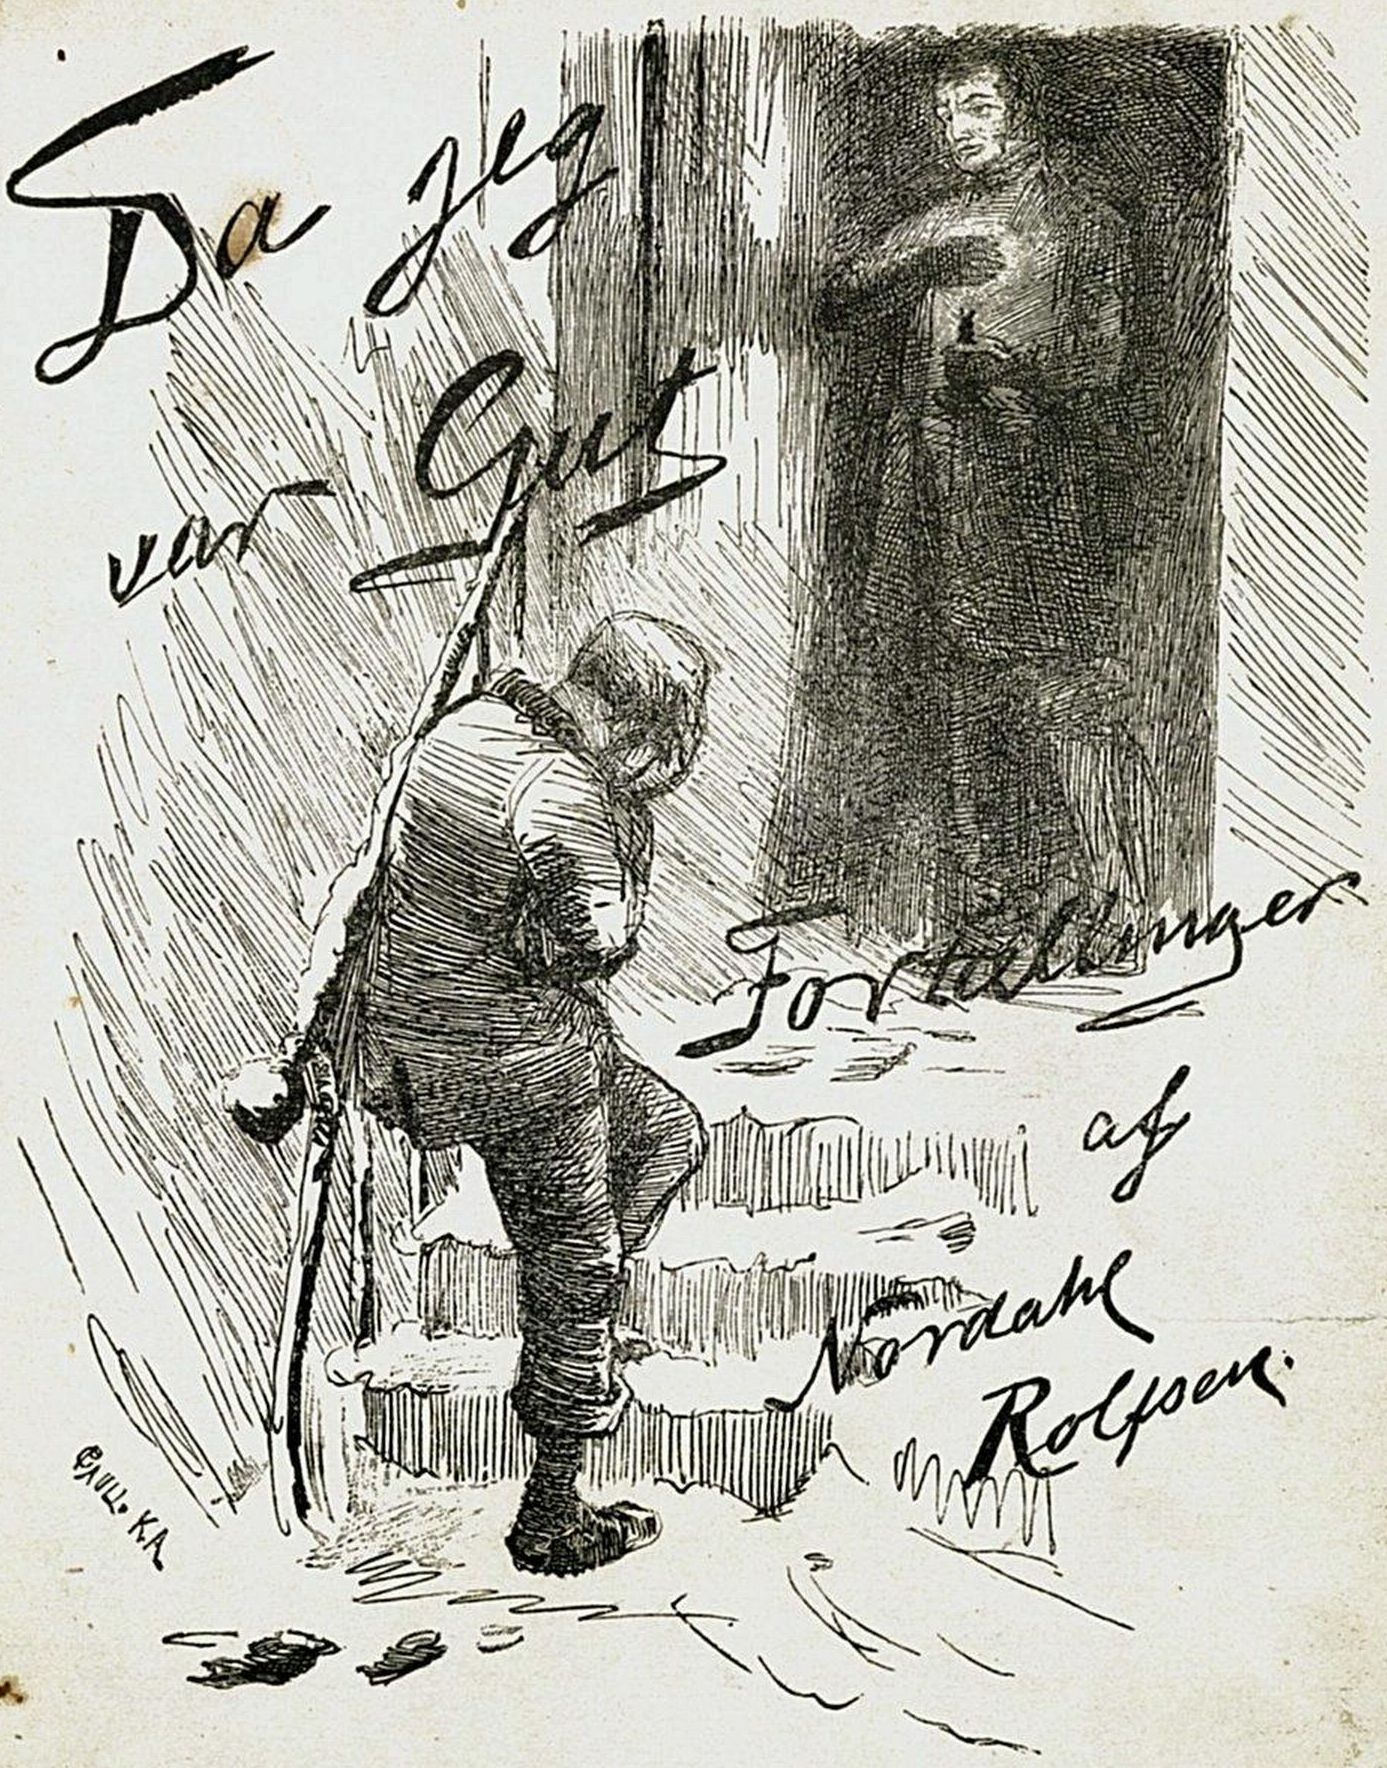 Da jeg
var Gut
Fortællinger
af
Nordahl
Rolfsen.